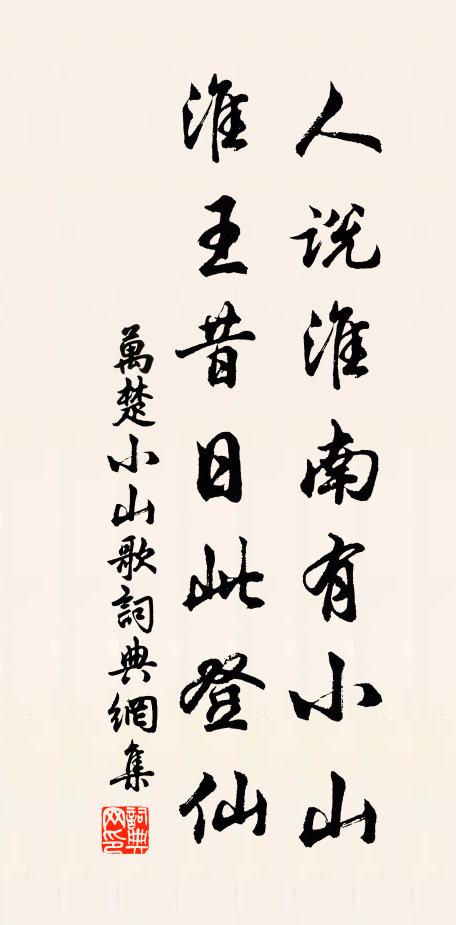 人说淮南有小山
淮王昔日此登仙
萬楚小山歌詞典網集
詞典网印